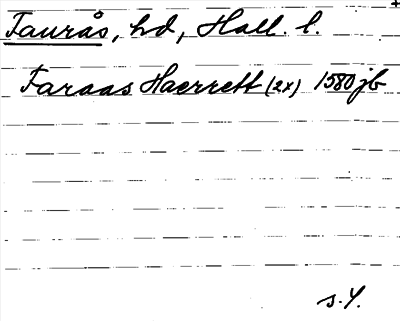 Faurås, hd, Hall. l.
Faraas Haerrett (2x) 1580 jb
s. Y.